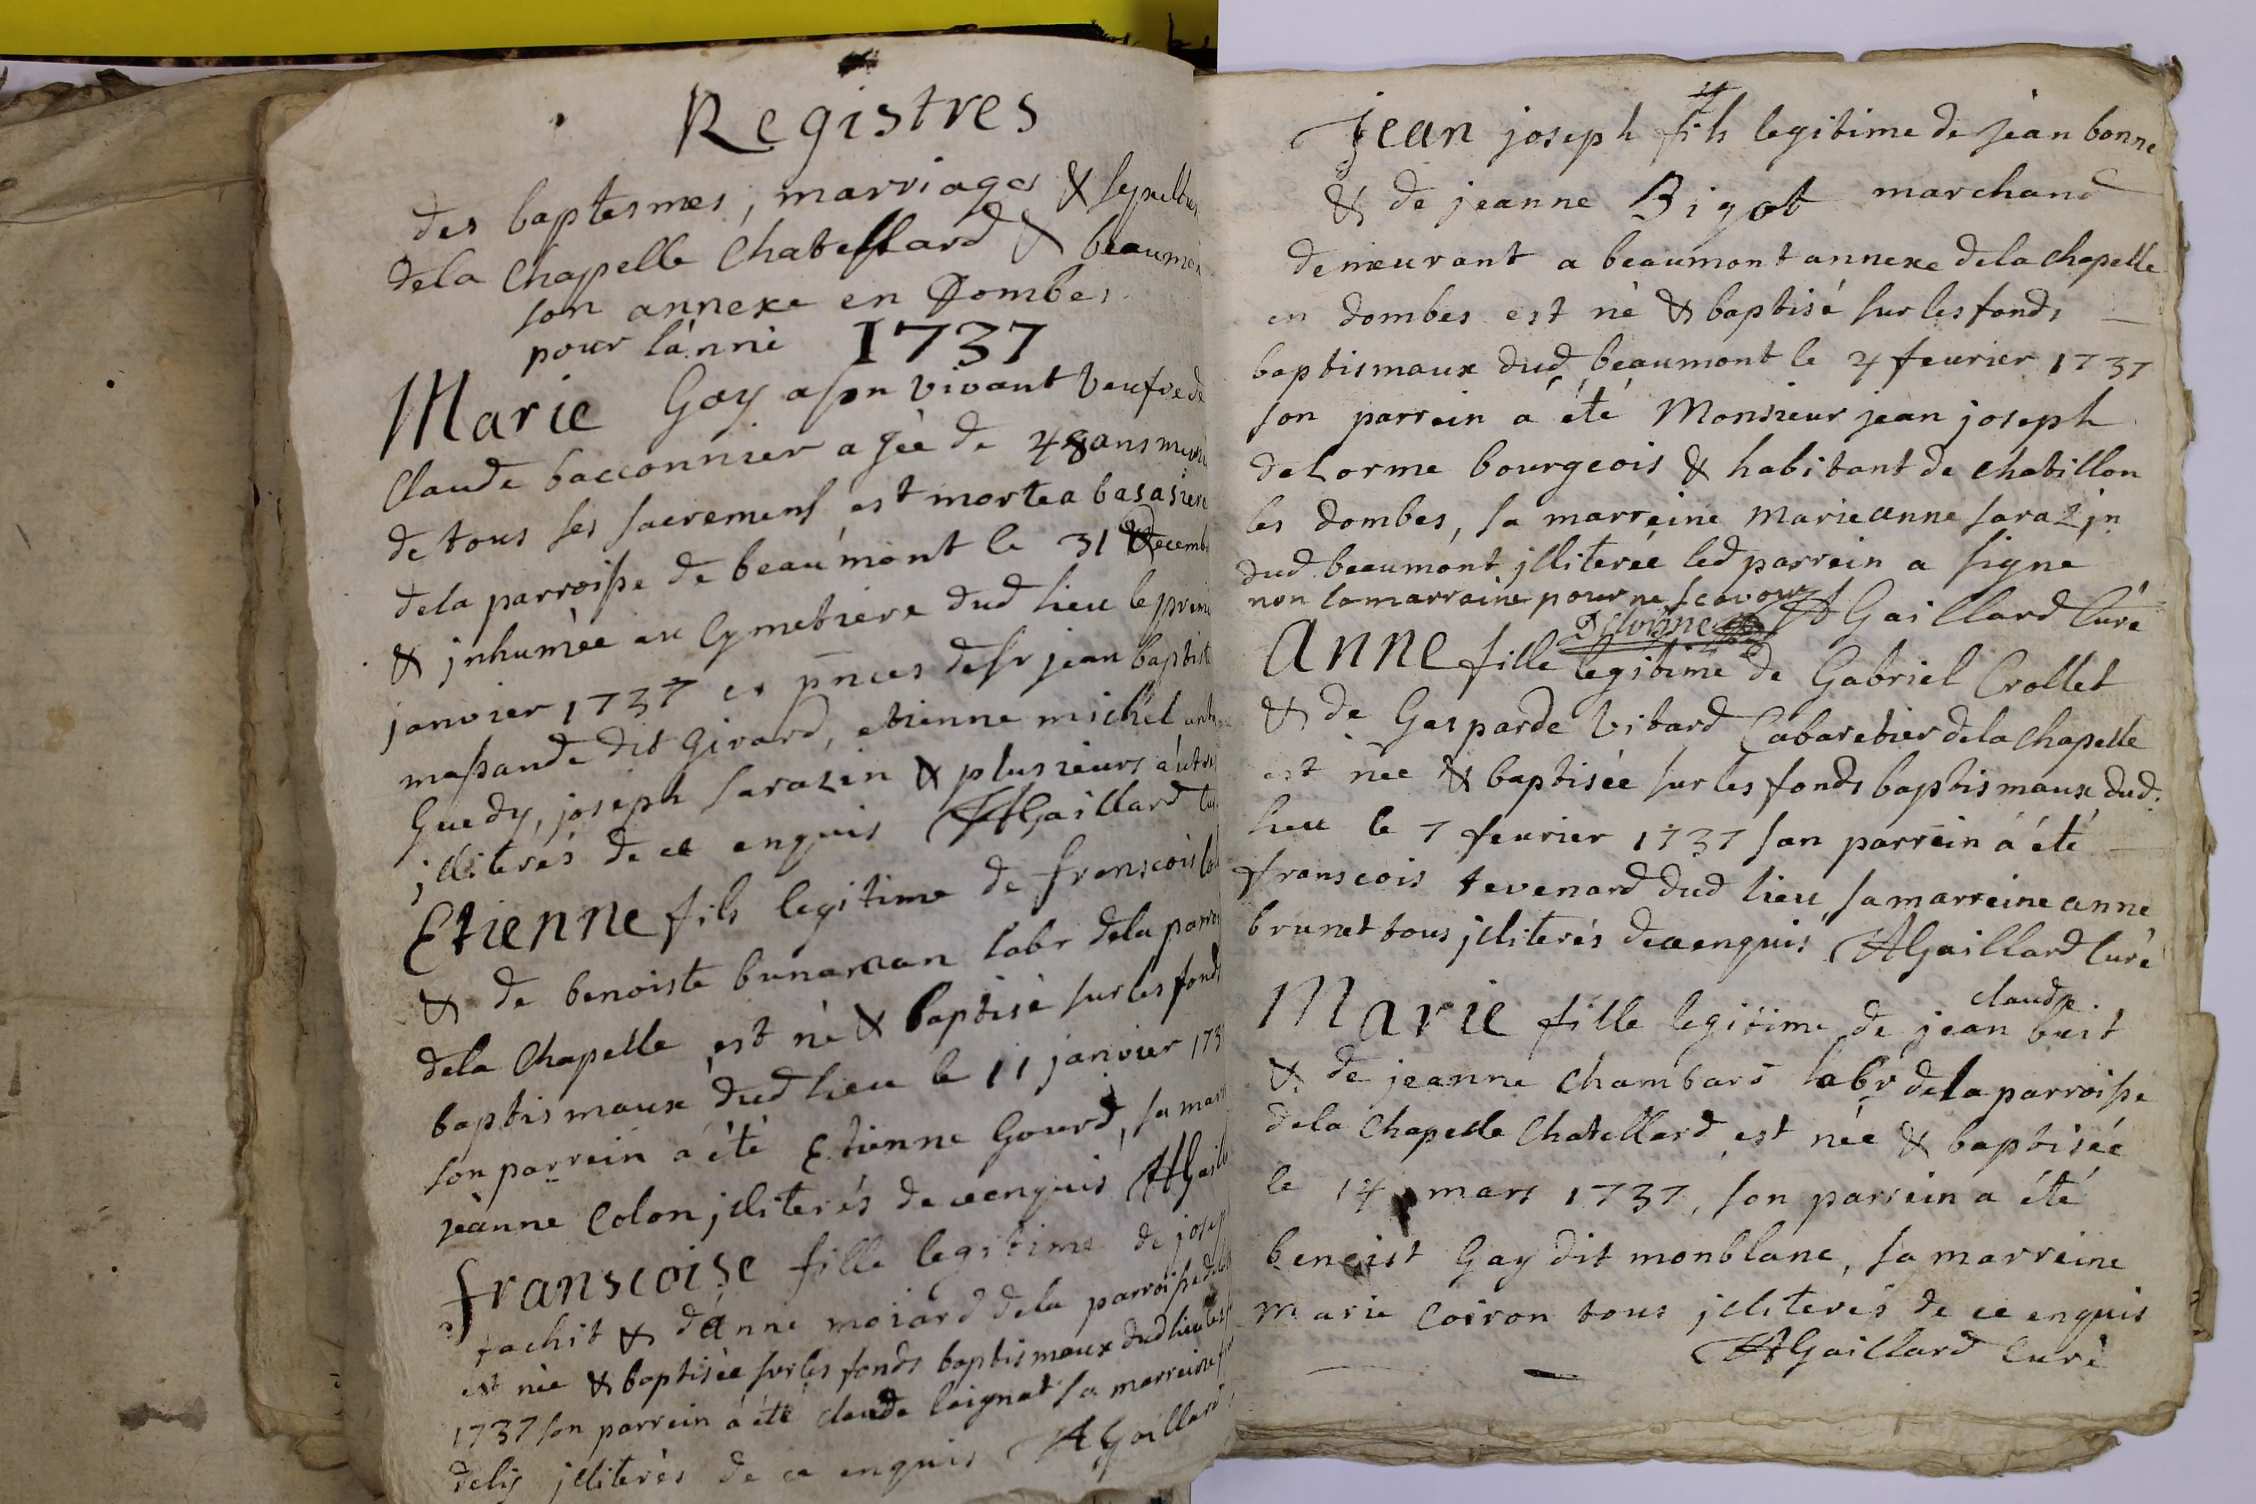 Registres
des baptesmes, marriages & sepultures
dela Chapelle Chatellard & beaumon
son annexe en Dombes
pour lánné 1737
Marie Gay a son vivant veufve de
Claude bacconnier agèe de 48 ans munie
de tous ses sacremens est morte a basasiere
dela parroisse de beaumont le 31 decemb
& inhumèe au Cymetiere dud lieu le premi
janvier 1737 es pnces de sr jean baptist
massande dit Girard, etienne michel
Guedy, joseph sarazin & plusieurs aútres
jlliterés de ce enquis AGaillard Cu
Etienne fils legitime de franscois
& de benoiste bunaman labr dela parroi
dela Chapelle est né & baptisé sur les fonds
baptismaux dud lieu le 11 janvier 173
son parrein a été Etienne Gourd, sa marr
jeanne Colon jlliterés de ce enquis AGaill
franscoise fille legitime de josep
rachit & d'Anne moiard dela parroisse dela
est née & baptisée sur les fonds baptismaux dud lieu les
1737 son parrein a été claude laignat sa marreine fr
delis jlliterés de ce enquis AGaillard
Jean joseph fils legitime de jean bonne
& de jeanne Bigot marchand
demeurant a beaumont annexe dela chapelle
en dombes est né & baptisé sur les fonds
baptismaux dud beaumont le 4 feurier 1737
son parrein a été Monsieur jean joseph
deLorme bourgeois & habitant de chatillon
les dombes, sa marreine marieanne sarazjn
dud beaumont jlliterée led parrein a signe
non la marraine pour ne scavoir AGaillard Curé
Delorme
Anne fille legitime de Gabriel Crollet
& de Gasparde Vitard Cabaretier dela chapelle
est née & baptisée sur les fonds baptismaux dud
lieu le 7 feurier 1737 son parrein a été
franscois tevenard dud lieu sa marreine anne
brunet tous jlliterés de ce enquis AGaillard Curé
claude
Marie fille legitime de jean buit
& de jeanne Chambard labr dela parroisse
dela Chapelle Chatellard est née & baptisée
le 14 mars 1737, son parrein a été
beneist Gay dit monblanc, sa marreine
Marie Coiron tous jlliterés de ce enquis
AGaillard Curé